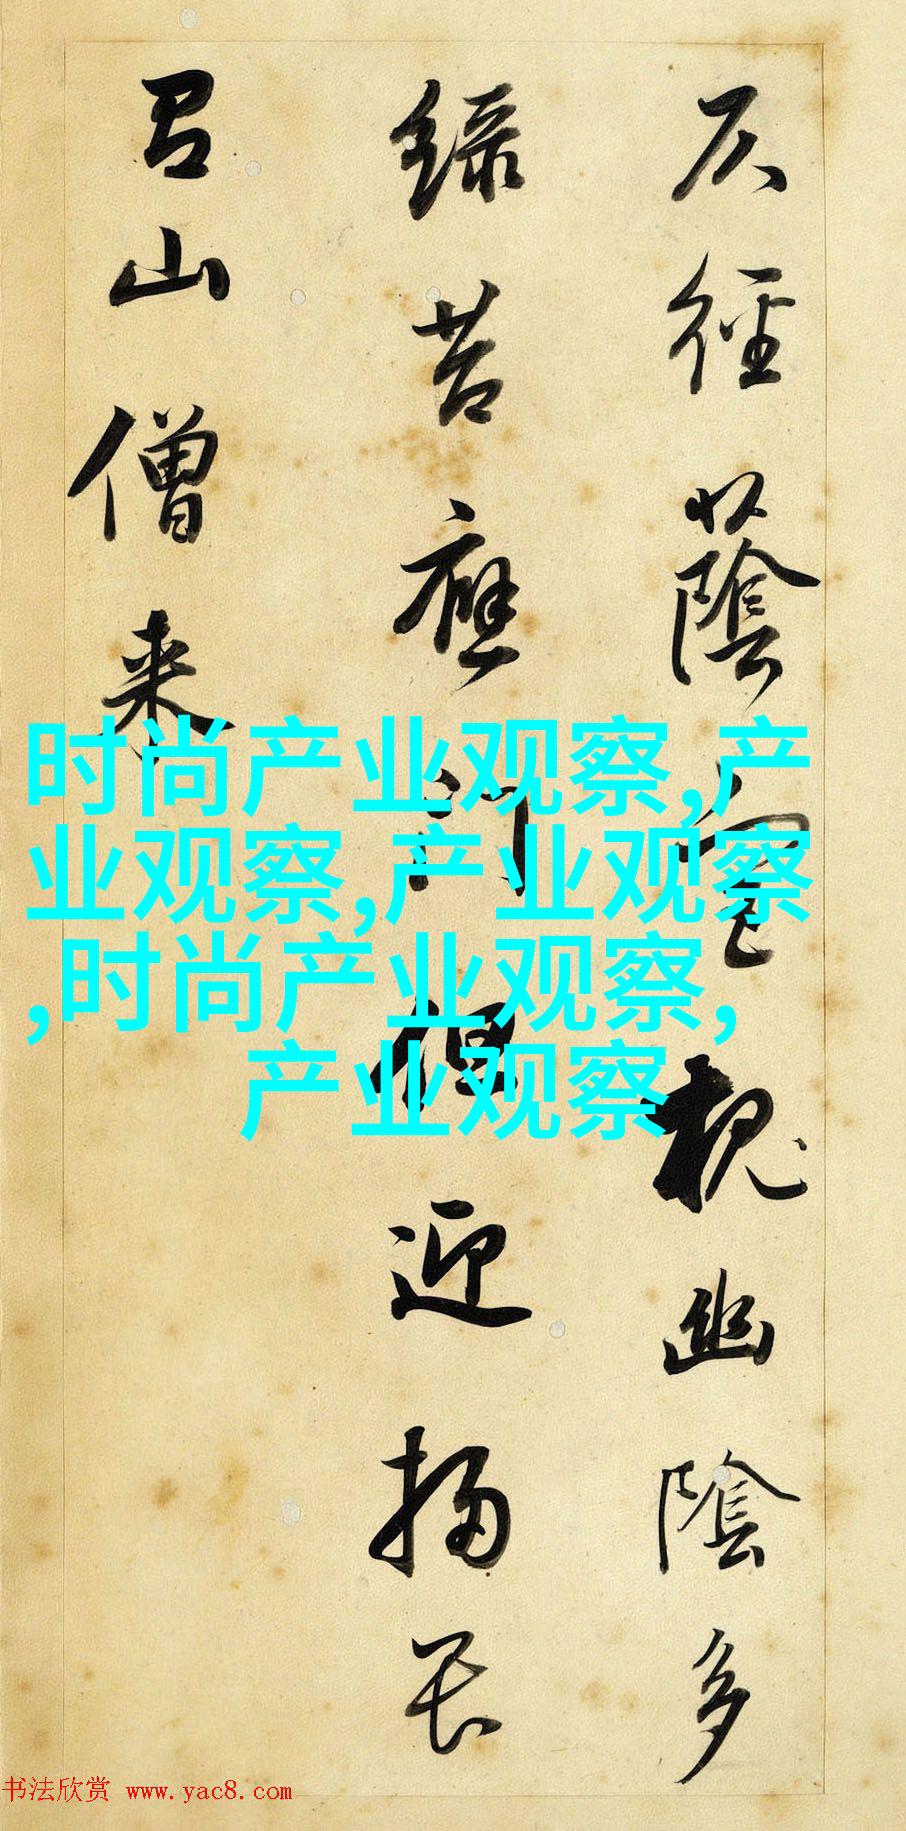 仄径蔭宫槐幽陰多
緑苔應門但迎掃畏
有山僧来
时尚产业观察,产
业观察,产业观察
,时尚产业观察,
产业观察
书法欣赏 www.yac8.com